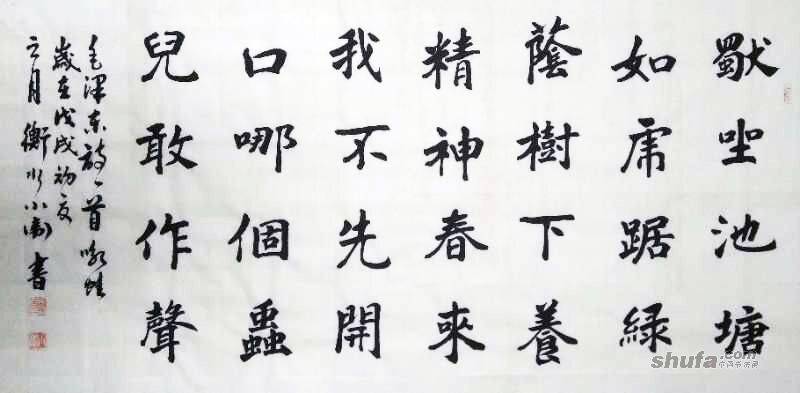 獨坐池塘
如虎踞綠
蔭樹下養
精神春來
我不先開
口哪個蟲
兒敢作聲
毛澤东詩一首咏蛙
歲在戊戌初夏
月衡水小書
shufa.com